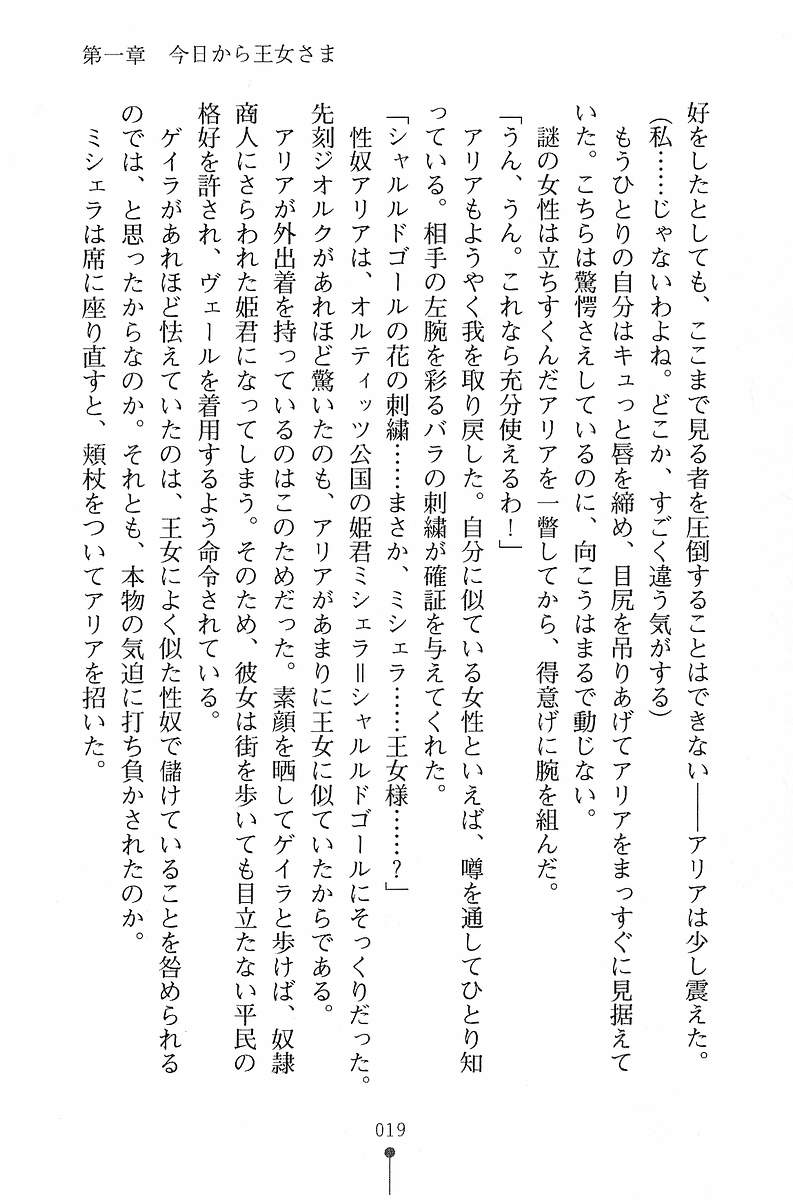 第一章　今日から王女さま
好をしたとしても、ここまで見る者を圧倒することはできない――アリアは少し震えた。
（私……じゃないわよね。どこか、すごく違う気がする）
もうひとりの自分はキュっと唇を締め、目尻を吊りあげてアリアをまっすぐに見据えて
いた。こちらは驚愕さえしているのに、向こうはまるで動じない。
謎の女性は立ちすくんだアリアを一瞥してから、得意げに腕を組んだ。
「うん、うん。これなら充分使えるわ！」
アリアもようやく我を取り戻した。自分に似ている女性といえば、噂を通してひとり知
っている。相手の左腕を彩るバラの刺繍が確証を与えてくれた。
「シャルルドゴールの花の刺繍……まさか、ミシェラ……王女様……？」
性奴アリアは、オルティッツ公国の姫君ミシェラ＝シャルルドゴールにそっくりだった。
先刻ジオルクがあれほど驚いたのも、アリアがあまりに王女に似ていたからである。
アリアが外出着を持っているのはこのためだった。素顔を晒してゲイラと歩けば、奴隷
商人にさらわれた姫君になってしまう。そのため、彼女は街を歩いても目立たない平民の
格好を許され、ヴェールを着用するよう命令されている。
ゲイラがあれほど怯えていたのは、王女によく似た性奴で儲けていることを咎められる
のでは、と思ったからなのか。それとも、本物の気迫に打ち負かされたのか。
ミシェラは席に座り直すと、頬杖をついてアリアを招いた。
019